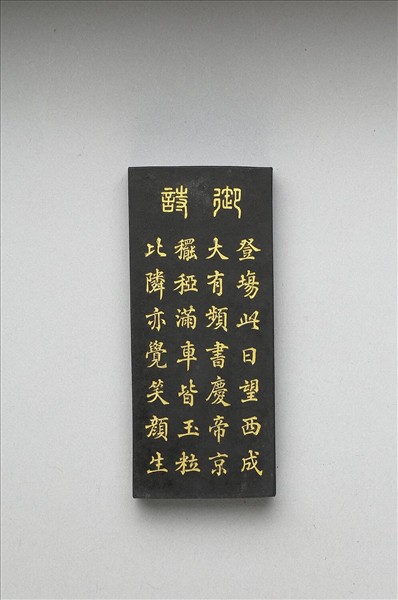 御詩
登場此日望西成
大有頻書慶帝京
穲稏滿車皆玉粒
比隣亦覺笑顏生